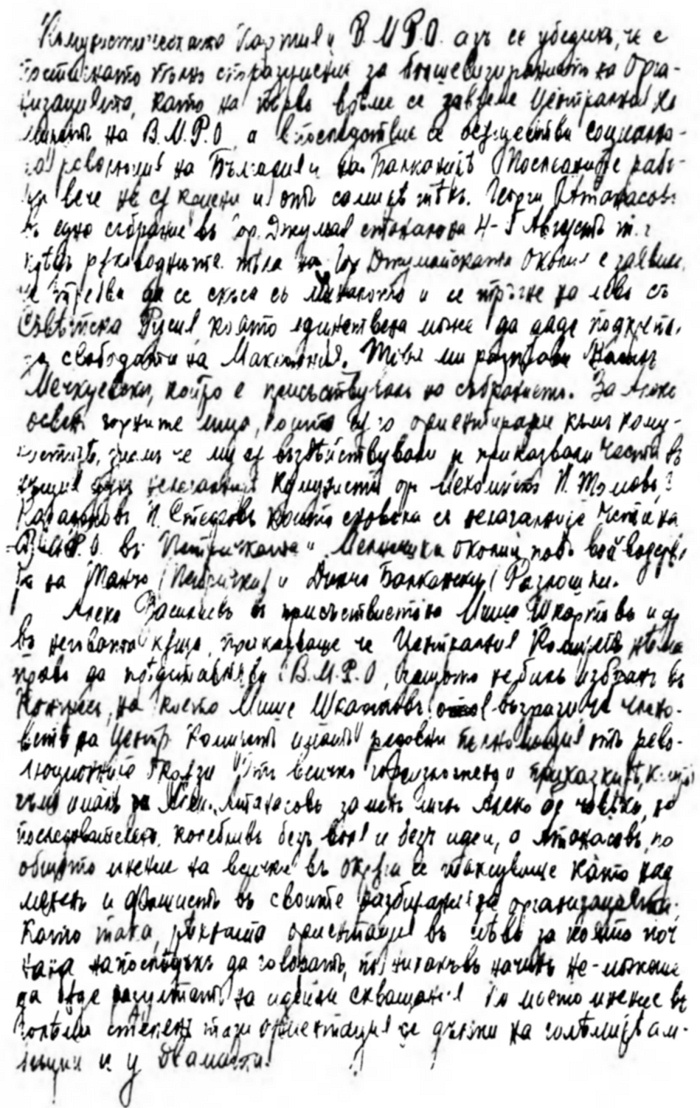 Комунистическата Партия и В.М.Р.О. азъ се убедихъ, че е
постигнато пълно споразумение за болшевизирането на Орга-
низацията, като на първо време се завземе Централния Ко
митетъ на В.М.Р.О. а впоследствие се осъществи социална-
та революция на България и на Балканитъ. Последните рабо-
ти вече не се криени и отъ самитъ тъхъ. Георги Атанасовъ
въ едно събрание въ Гор. Джумая станало на 4-5 Августъ т. г.
предъ ръководните тъла на Гор Джумайската околия е заявилъ
че трябва да се скъса съ миналото и се тръгне на лево съ
Съвътска Русия която единствена може да даде подкрепа
за свободата на Македония. Това ми разправи
който е присъствувалъ на събранието. За Алеко
освенъ горните лица, които го ориентирали към кому-
нистите, зная че му въздействували и приказвали често въ
комунисти
И. Стефовъ които сноваха съ нелегалните чети на
В.М.Р.О. въ Петричката и Мелнишка околии подъ войводств
та на Манчо (Петричка) и Динчо Балкански (Разложки.
Алеко Василевъ въ присъствието на Мише Шкартовъ и др
въ неговата къща, приказваше че Централния Комитетъ няма
право да представлява В.М.Р.О, защото не билъ избранъ въ
Конгресъ, на което Мише Шкартовъ възрази че члено-
вете на Центр. Комитетъ иматъ редовни пълномощия отъ рево-
люционните окръзи. Отъ всичко гореизложено и приказките, които
съмъ ималъ съ Алеко и Атанасовъ за менъ лично Алеко бе човекъ, не
последователенъ, колебливъ безъ воля и безъ идеи, а Атанасовъ, по
общото мнение на всички въ окръга се таксуваше като над
мененъ и фашистъ въ своите разбирания за организацията.
Като така, тяхната ориентация въ лево за която поч
наха напоследъкъ да говорятъ, по никакъвъ начинъ не-можеше
да бъде резултатъ на идейни схващания. По моето мнение въ
голяма степень тази ориентация се дължи на големите ам-
биции и у двамата.